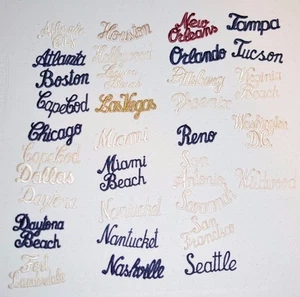 Atlantic
City
Atlanta
Boston
Cape Cod
Chicago
Cape Cod
Dallas
Daytona
Daytona
Beach
Fort
Lauderdale
Houston
Hollywood
Las Vegas
Miami
Miami
Beach
Nantucket
Nantucket
Nashville
New
Orleans
Orlando
Pittsburg
Phoenix
Reno
San
Antonio
Savannah
San
Francisco
Seattle
Tampa
Tucson
Virginia
Beach
Washington
D.C.
Wildwood